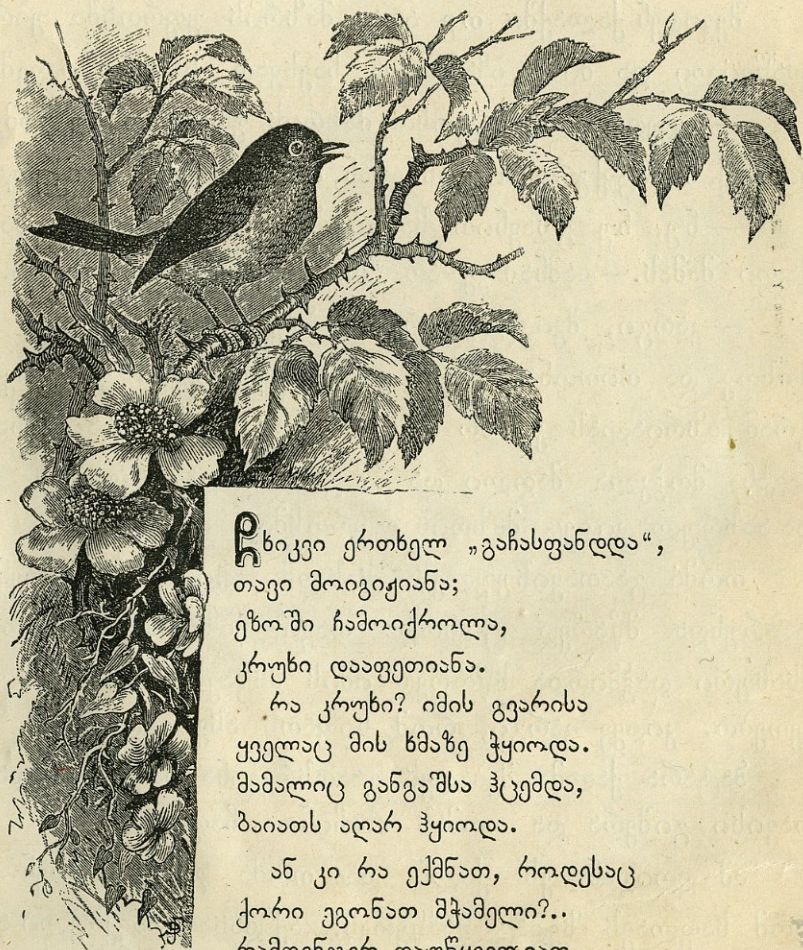 ჩხიკვი ერთხელ „გაჩასფანდდა“,
თავი მოიგიჟიანა;
ეზოში ჩამოიქროლა,
კრუხი დააფეთიანა.
რა კრუხი? იმის გვარისა
ყველაც მის ხმაზე ჭყიოდა.
მამალიც განგაშსა ჰცემდა,
ბაიათს აღარ ჰყიოდა.
ან კი რა ექმნათ, როდესაც
ქორი ეგონათ მჭამელი?..